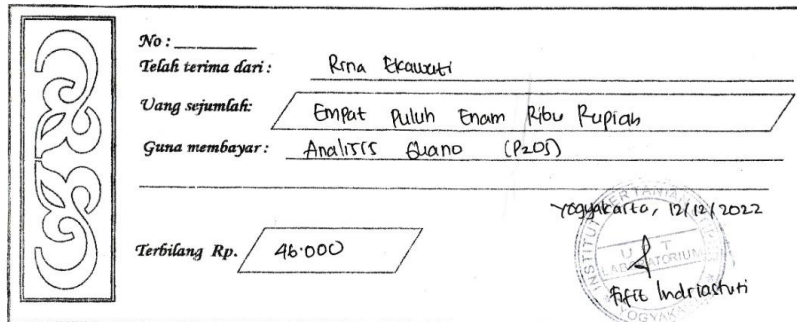 No :
Telah terima dari : Rina Ekawati
Uang sejumlah: Empat Puluh Enam Ribu Rupiah
Guna membayar : Analisis Guano (P2O5)
Yogyakarta, 12/12/2022
Terbilang Rp. 46.000
INSTITUT PERTANIAN
U P T
LABORATORIUM
YOGYAKARTA
Fifit Indriastuti